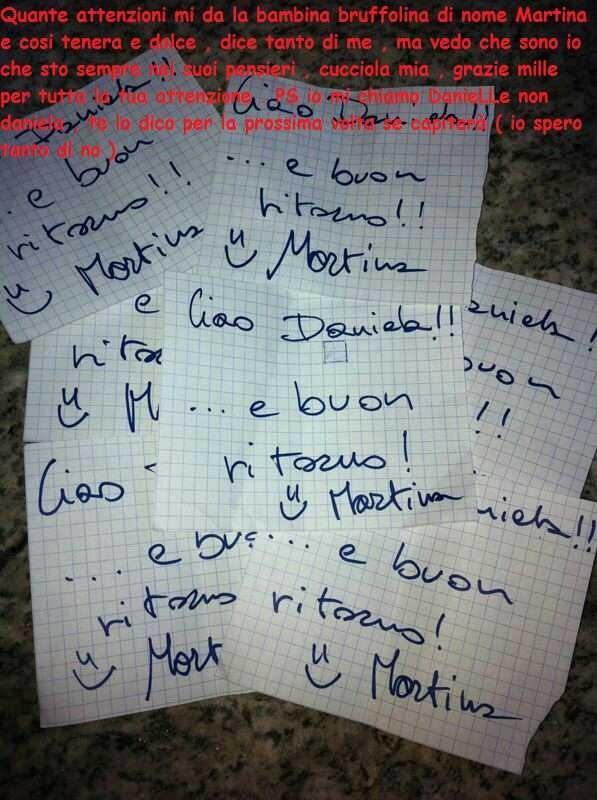 Quante attenzioni mi da la bambina bruffolina di nome Martina
e cosi tenera e dolce , dice tanto di me , ma vedo che sono io
che sto sempre nei suoi pensieri , cucciola mia , grazie mille
per tutta la tua attenzione . PS io mi chiamo DanieLLe non
daniela , te lo dico per la prossima volta se capiterà ( io spero
tanto di no )
... e buon
ritorno!!
Martina
Ciao Daniela!
... e buon
ritorno!!
Martina
e
rito
M
Ciao Daniela!!
... e buon
ritorno!
Martina
aniela!
buon
!!
Ciao
... e bu
ritorno
Mart
niela!!
... e buon
ritorno!
Martina